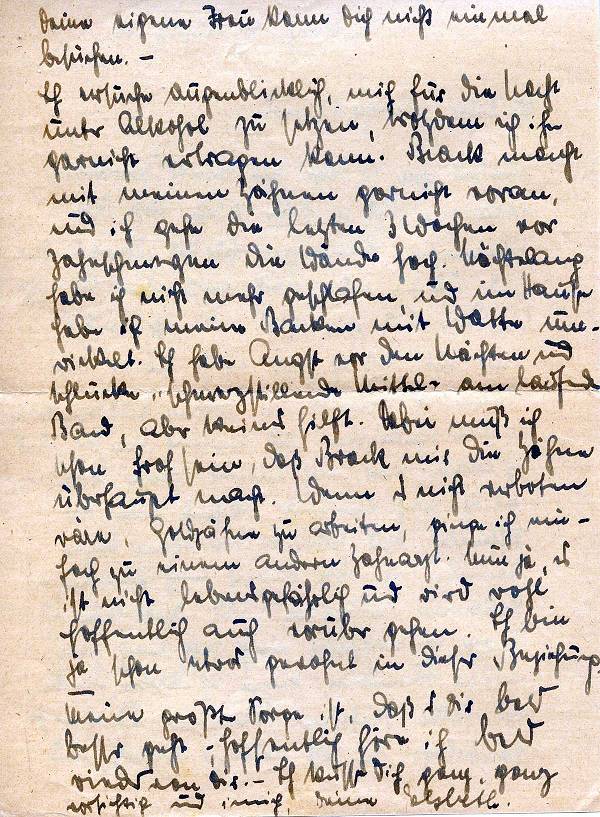 deine eigene Frau kann dich nicht einmal
besuchen. –
Ich versuche augenblicklich, mich für die Nacht
unter Alkohol zu setzen, trotzdem ich ihn
garnicht ertragen kann. Brack macht
mit meinen Zähnen garnicht voran,
und ich gehe die letzten 3 Wochen vor
Zahnschmerzen die Wände hoch. Nächtelang
habe ich nicht mehr geschlafen, und im Hause
habe ich meine Backen mit Watte um-
wickelt. Ich habe Angst vor den Nächten und
schlucke schmerzstillende Mittel am laufenden
Band, aber keins hilft. Dabei muß ich
schon froh sein, daß Brack mir die Zähne
überhaupt macht. Wenn es nicht verboten
wäre, Goldzähne zu arbeiten, ginge ich ein-
fach zu einem andern Zahnarzt. Nun ja, es
ist nicht lebensgefährlich und wird wohl
hoffentlich auch vorüber gehen. Ich bin
ja schon etwas gewohnt in dieser Beziehung.
Meine größte Sorge ist, daß es dir bald
besser geht, hoffentlich höre ich bald
wieder von dir. – Ich küsse dich ganz, ganz
vorsichtig und innig, deine